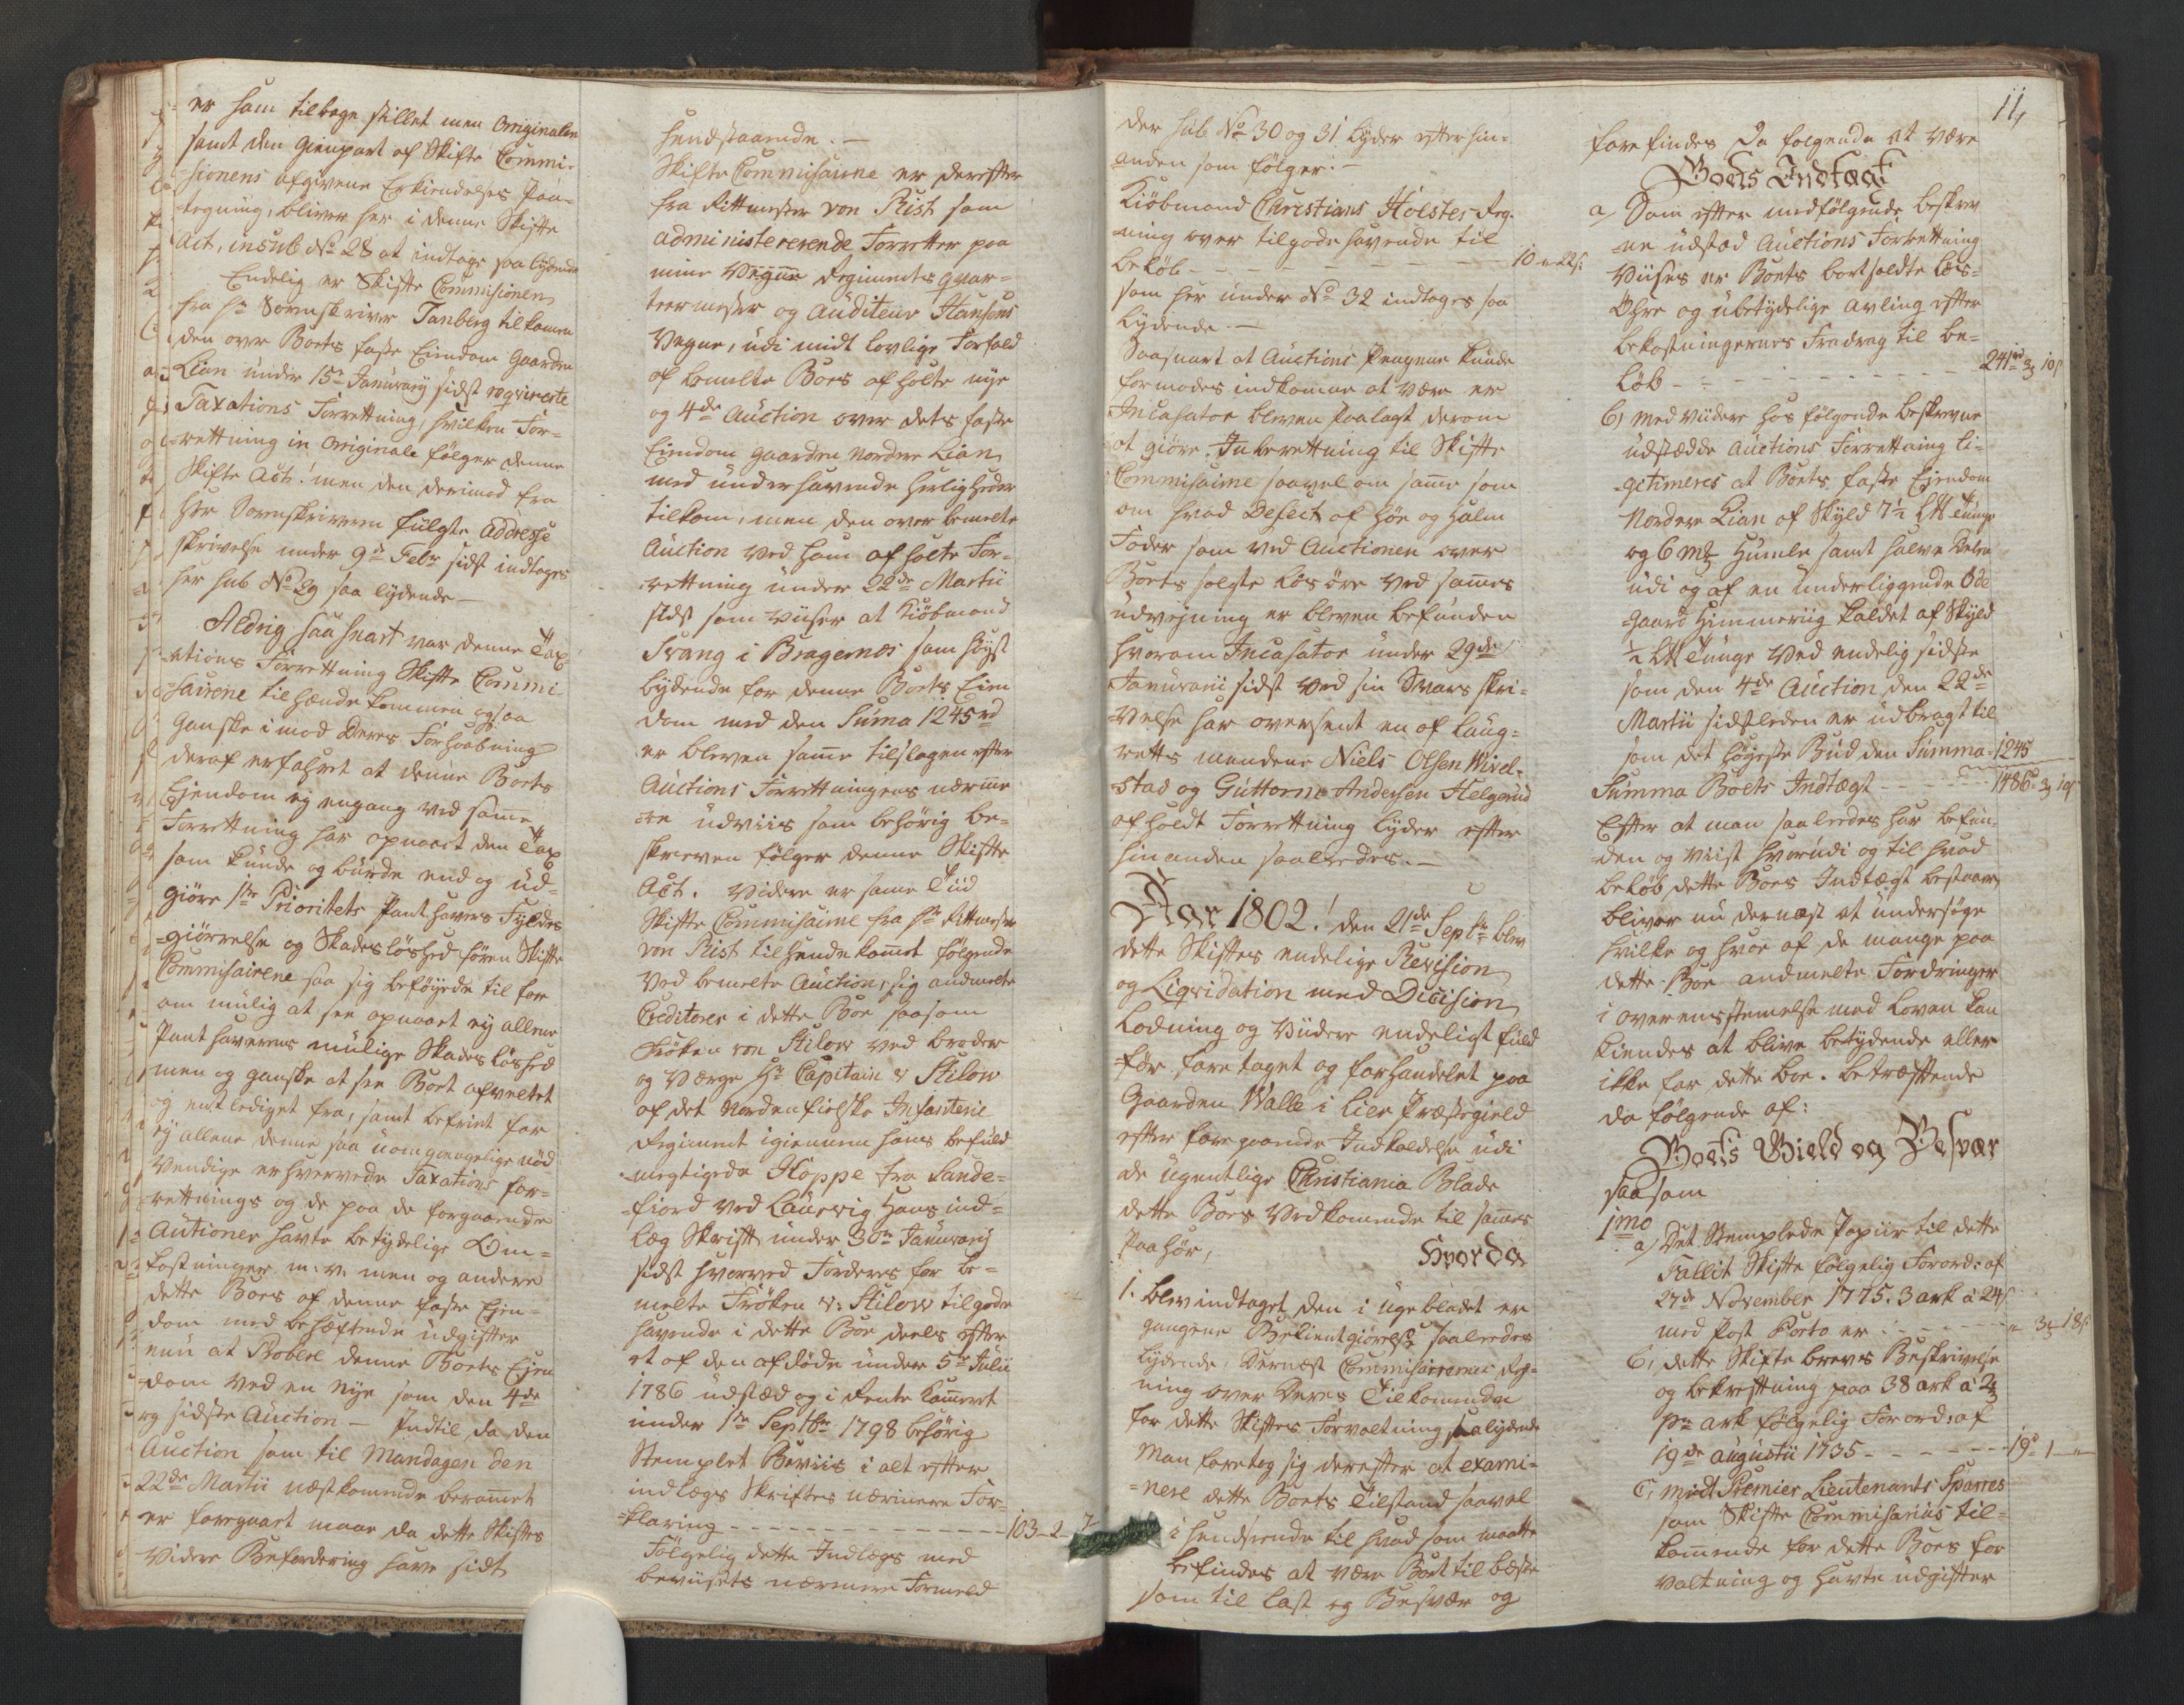 er ham tilbage stillet men Originalen
samt den Gienpart af Skifte Commi-
sionens afgivene Erkiendelses Paa-
tegning, bliver her i denne Skifte
Act, insub No 28 at indtage saa lydende
Endelig er Skifte Commisionen
fra Hr Sorenskriver Tanberg tilkommen
den over Boets faste Eiendom Gaarden
Lian under 15de Januarij sidst reqvirerte
Taxations Forretning, hvilken For-
retning in Originale følger denne
Skifte Act! men den derimod fra
Hr Sorenskriveren fulgte Addresse
skrivelse under 9de Febr sidst indtages
her sub No 29 saa lydende
Aldrig saa snart var denne Tax
ations Forretning Skifte Commi-
sairene tilhænde kommen og saa
ganske imod Deres Forhaabning
deraf erfahret at denne Boets
Ejendom ey engang ved samme
Forretning har opnaaet den Tax
som kunde og burde end og ud-
giøre 1ste Prioritets Panthavers Fyldest
giørelse og Skadesløshed føren Skifte
Commisairene saa sig beføyede til for
om mulig at see opnaaet ey allene
Panthaverens mulige Skadesløshed
men og ganske at see Boet afveltet
og entlediget fra, samt befriet for
ey allene denne saa uomgiængelige nød
vendige erhvervede Taxations for-
retnings og de paa de forgaaende
Auctioner havte betydelige Om-
kostninger m: v: men og andere
dette Boes af denne faste Ejen-
dom med behæftende udgifter
enu at Probere denne Boets Ejen
dom ved en nye som den 4de
og sidste Auction – Indtil da den
Auction som til Mandagen den
22de Martii næstkomende berammet
er foregaaet maae da dette Skiftes
Videre Befordring have sidt
henstaaende. –
Skifte Commisairne er derefter
fra Rittmester von Rist som
administrerende Forretter paa
mine Vegne Regiments qvar-
teermester og Auditeur Hansens
Vegne, udi midt lovlige Forfald
af bemelte Boes afholte nye
og 4de Auction over dets faste
Eiendom Gaarden Nordre Lian
med underhavende Herligheder
tilkom, men den over bemelte
Auction ved ham afholte For-
retning under 22de Martii
sidst som viiser at Kiøbmand
Svang i Bragernes som høyst
bydende for denne Boets Eien
dom med den Suma 1245rd
er bleven samme tilslagen efter
Auctions Forretningens nærme
re udviis som behørig be-
skreven følger denne Skifte
Act. Videre er same Tiid
Skifte Commisairne fra Hr Rittmester
von Rist tilhende komet følgende
ved bemelte Auction, sig anmelte
Creditorer i dette Boe saasom
Frøken von Stilow ved broder
og Værge Hr Capitain v Stilow
af det Nordenfielske Infanterie
Regiment igiennem hans befuld
megtigede Hoppe fra Sande-
fiord ved Laurvig Hans ind-
læg Skrift under 30te Januarij
sidst hvorved Forderes for be-
melte Frøken v: Stilow tilgode
havende i dette Boe deels efter
et af den afdøde under 5te Julii
1786 udstæd og i Rente Kamret
under 1ste Septbr 1798 behørig
Stemplet Beviis i alt efter
indlægs Skriftes nærmere For-
klaring – – – – – 103 – 2 – 7
Følgelig dette Indlægs med
beviisets nærmere Formeld
der sub No 30 og 31 lyder efter hin-
anden som følger: –
Kiøbmand Christians Holstes Reg-
ning over tilgodehavende til
beløb – – – – – 10 – " 22s:
som her under No 32 indtages saa
lydende. –
Saasnart at Auctions Pengene kunde
formodes indkomne at være er
Incasator bleven paalagt derom
at giøre Inberetning til Skifte
Commisairne saavel om same som
om hvad Defect af Høe og Halm
Foder som ved Auctionen over
Boets solgte løsøre ved sammes
udvejning er bleven befunden
hvorom Incasator under 29de
Januarii sidst ved sin Svars skri-
velse har oversent en af Laug-
retts mendene Niels Olsen Wivel-
stad og Guttorm Andersen Helgerud
afholdt Forretning lyder efter
hinanden saaledes. –
Aar 1802! den 21de Septbr blev
dette Skiftes endelige Revision
og Liqvidation med Dicision
Lodning og Viidere endeligt fuld
før foretaget og forhandelet paa
Gaarden Walle i Lier Præstegield
efter foregaaende Indkaldelse udi
de ugentlige Christiania Blade
dette Boes Vedkomende til sames
Paahør,
Hvorda
1. blev indtaget den i Ugebladet er
gangene Bekientgiørelse saaledes
lydende Dernæst Commisairernes Reg-
ning over Deres Tilkomende
for dette Skiftes Forvaltning saalydende
Man foretog sig derefter at exami-
nere dette Boets Tilstand saavel
i henseende til hvad som maatte
befindes at være Boet til beste
som til last og Besvær og
11,
forefindes Da følgende at være
Boets Indtægt
a, Som efter medfølgende beskrev
ne udstæd Auctions Forretning
viises er Boets bortsolte løs-
Øhre og ubetydelige avling efter
bekostningernes Fradrag til be-
løb – – – – – 241rd 3 10s
b, med viidere hos følgende beskrevne
udstædde Auctions Forretning li-
getimeres at Boets faste Ejendom
Nordre Lian af Skyld 7½ Lt Tunge
og 6 mk Humle samt halve Delen
udi og af en underliggende Øde
gaard Himmeriig kaldet af Skyld
½ Lt Tunge ved endelig sidste
som den 4de Auction den 22de
Martii sidstleden er udbragt til
som det høyeste Bud den Summa – 1245
Summa Boets Indtægt – – – 1486rd 3 10s
Efter at man saaledes har befun-
den og viist hvorudi og til hvad
beløb dette Boes Indtægt bestaar,
bliver nu dernæst at undersøge
hvilke og hvor af de mange paa
dette Boe andmelte Fordringer
i overensstemelse med Loven kan
kiendes at blive betydende eller
ikke for dette boe. betræffende
da følgende af:
Boets Gield og Besvær
saasom
1mo
a, Det Stemplede Papiir til dette
Fallit Skifte følgelig Forord: af
27de November 1775. 3 ark a 24s
med Post Porto er – – – – " 3 18s
b, dette Skifte breves Beskrivelse
og bekreftning paa 38 ark a 2
pr ark følgelig Forord: af
19de Augustii 1735 – – – – 19d 1 – "
c, midt Premier Lieutenants Sparres
som Skifte Commisarius til-
komende for dette Boes for
valtning og havte udgifter